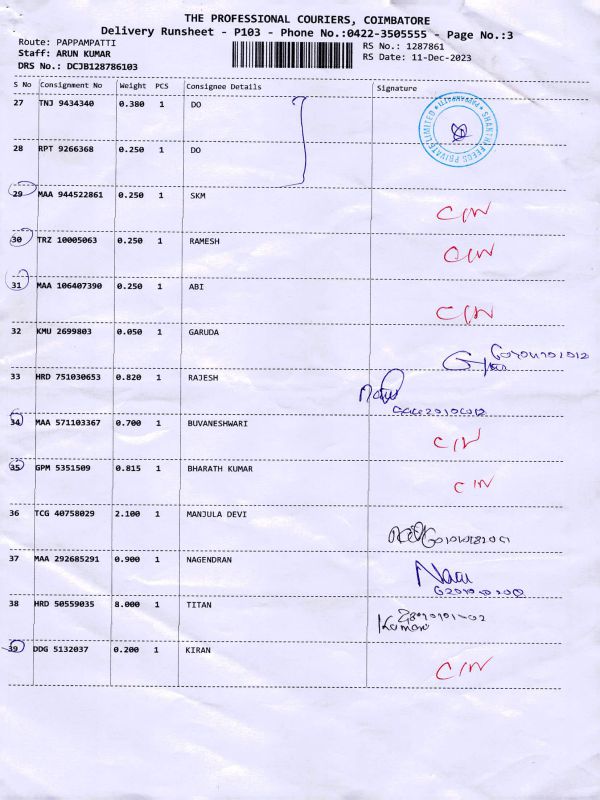 THE PROFESSIONAL COURIERS, COIMBATORE
Delivery Runsheet - P103 - Phone No.:0422-3505555 - Page No.:3
Route: PAPPAMPATTI
Staff: ARUN KUMAR
DRS No.: DCJB128786103
RS No.: 1287861
RS Date: 11-Dec-2023
S No Consignment No Weight PCS Consignee Details Signature
27 TNJ 9434340 0.380 1 DO
SHANTHI FEEDS PRIVATE LIMITED
28 RPT 9266368 0.250 1 DO
29 MAA 944522861 0.250 1 SKM CIN
30 TRZ 10005063 0.250 1 RAMESH CIN
31 MAA 106407390 0.250 1 ABI CIN
32 KMU 2699803 0.050 1 GARUDA
33 HRD 751030653 0.820 1 RAJESH
34 MAA 571103367 0.700 1 BUVANESHWARI CIN
35 GPM 5351509 0.815 1 BHARATH KUMAR CIN
36 TCG 40758029 2.100 1 MANJULA DEVI
37 MAA 292685291 0.900 1 NAGENDRAN
38 HRD 50559035 8.000 1 TITAN
39 DDG 5132037 0.200 1 KIRAN CIN